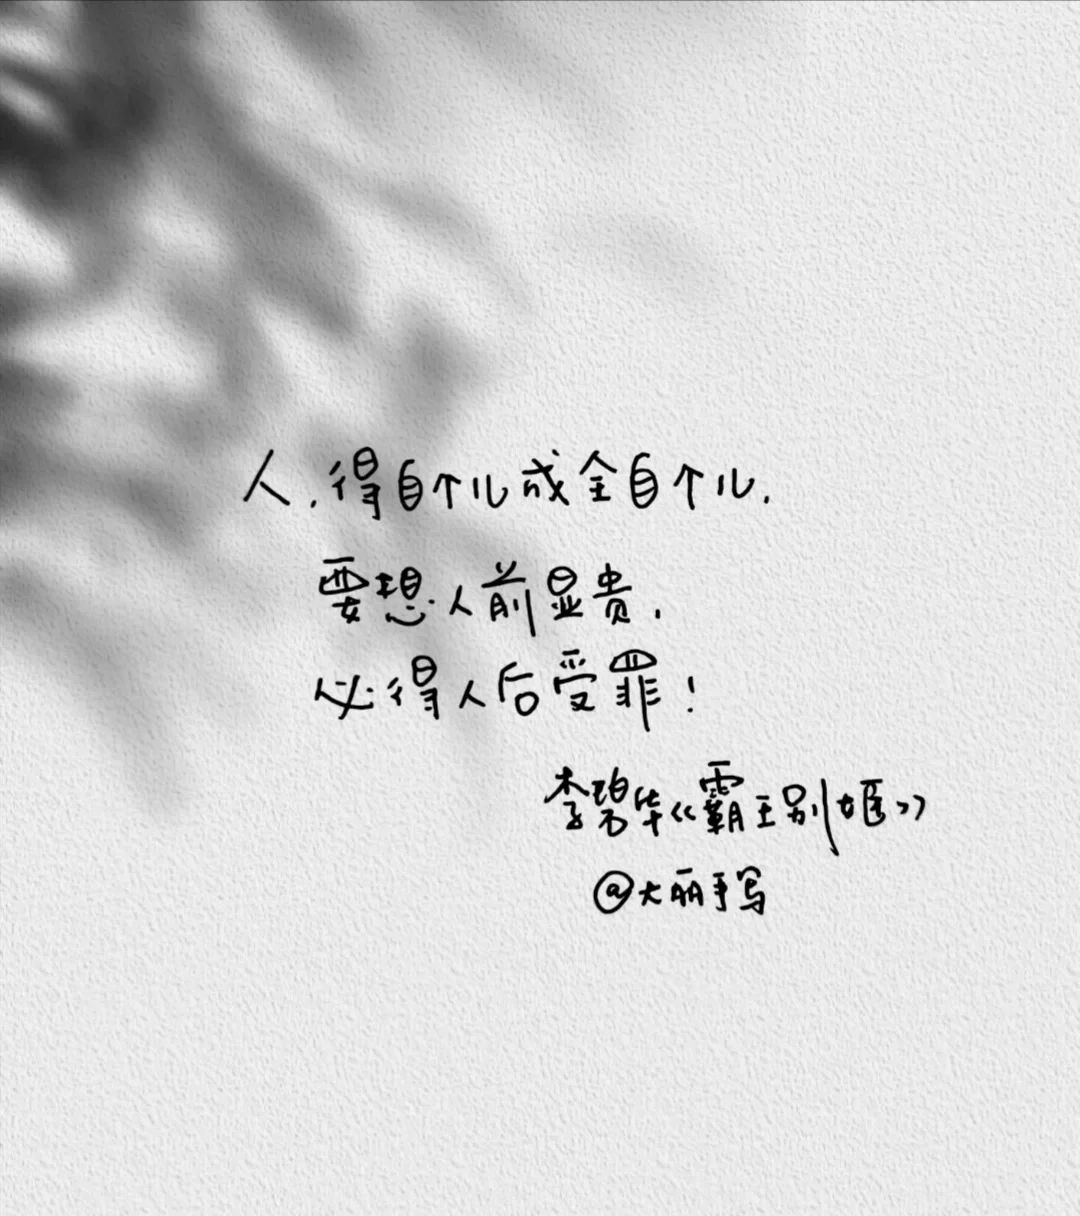 人.得自个儿成全自个儿.
要想人前显贵.
必得人后受罪！
李碧华《霸王别姬》
@大丽手写